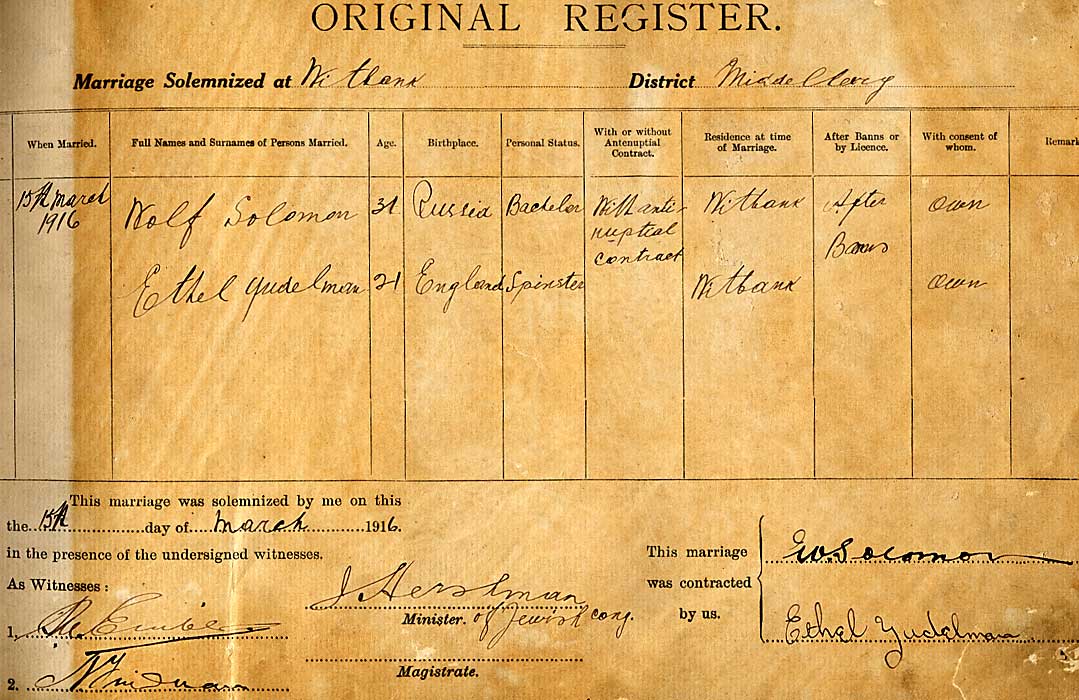 ORIGINAL REGISTER.
Marriage Solemnized at Witbank District Middelburg
When Married. Full Names and Surnames of Persons Married. Age. Birthplace. Personal Status. With or without Antenuptial Contract. Residence at time of Marriage. After Banns or by Licence. With consent of whom. Remark
15th march 1916 Wolf Solomon 31 Russia Bachelor With anti-nuptial contract Witbank After Banns own
Ethel Yudelman 21 England Spinster Witbank own
This marriage was solemnized by me on this
the 15th day of March 1916.
in the presence of the undersigned witnesses.
As Witnesses :
1.
2.
J Hershman
Minister. of Jewish cong.
Magistrate.
This marriage
was contracted
by us.
W. Solomon
Ethel Yudelman